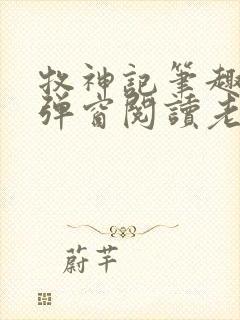 牧神記筆趣
弹窗閱讀老
蔚芊